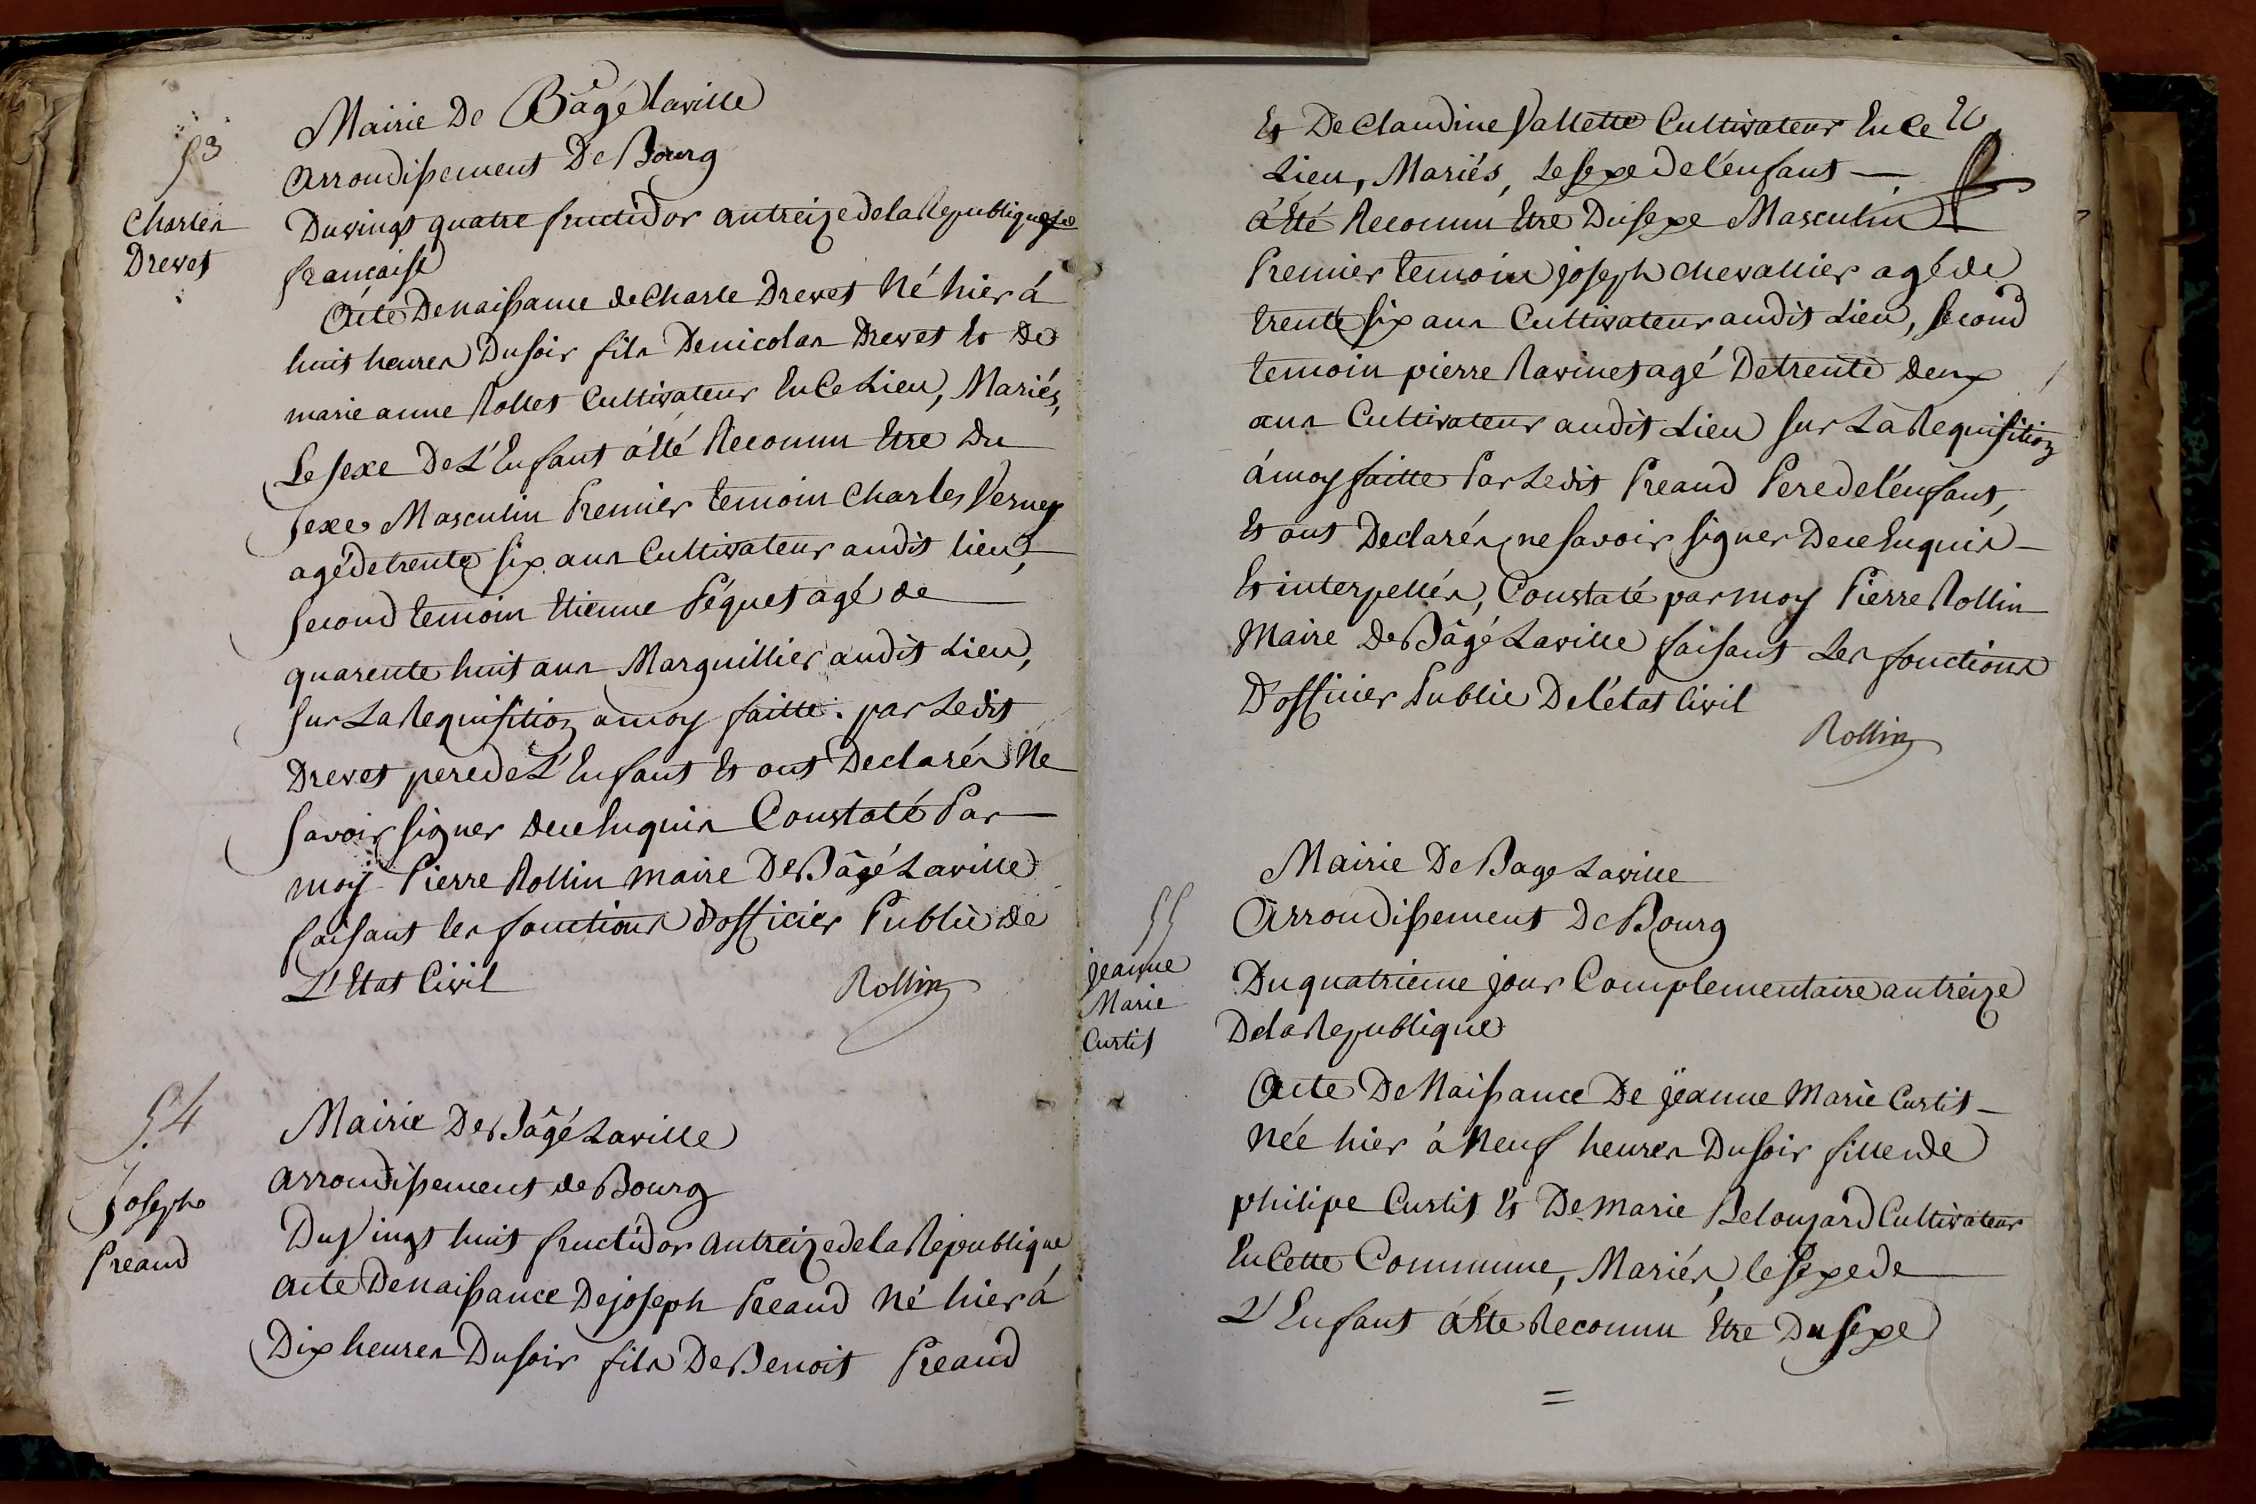 53
Charles
Drevet
Mairie De Bâgé laville
arrondissement De Bourg
Du vingt quatre fructidor an treize de la Republique
française
Acte De naissance de Charle Drevet Né hier á
huit heures Du soir fils De nicolas Drevet Et De
marie anne Rollet Cultivateur En Ce Lieu, Mariés,
Le sexe De L'Enfant á Eté Reconnu Etre Du
sexe Masculin Premier temoin Charles Verney
agé de trente six ans Cultivateur audit lieu,
second temoin Etienne Péquet agé de
quarente huit ans Marguillier audit Lieu,
sur La Requisition a moy faitte. par Ledit
Drevet pere de L'Enfant Et ont Declarés Ne
savoir signer De ce Enquis Constaté Par
moy Pierre Rollin maire De Bâgé Laville
faisant les fonctions d'officier Public de
L'Etat Civil
Rollin
54
Joseph
Preaud
Mairie De Bâgé Laville
arrondissement de Bourg
Du Vingt huit fructidor an treize de la Republique
acte De naissance De joseph Preaud Né hier á
Dix heures Du soir fils De Benoit Preaud
Et De Claudine Vallette Cultivateur En Ce
Lieu, Mariés, Le sexe de l'énfant
á Eté Reconnu Etre Du sexe Masculin
Premier temoin joseph chevallier agé de
trente six ans Cultivateur audit Lieu, second
temoin pierre Ravinet agé De trente deux
ans Cultivateur audit Lieu sur La Requisition
á moy faitte Par Ledit Preaud Pere de l'énfant,
Et ont Declarés ne savoir signer De ce Enquis
Et interpellés, Constaté par moy Pierre Rollin
Maire De Bâgé Laville faisant Les fonctions
D'officier Public De l'état Civil
Rollin
55
jeanne
Marie
Curtit
Mairie De Bage Laville
Arrondissement De Bourg
Du quatrieme jour Complementaire an treize
De la Republique
Acte De Naissance De jeanne Marie Curtit
Née hier á Neuf heures Du soir fille de
philipe Curtit Et De marie Belouzard Cultivateur
En Cette Commune, Mariés, le sexe de
L'Enfant á Eté Reconnu Etre Du sexe
=